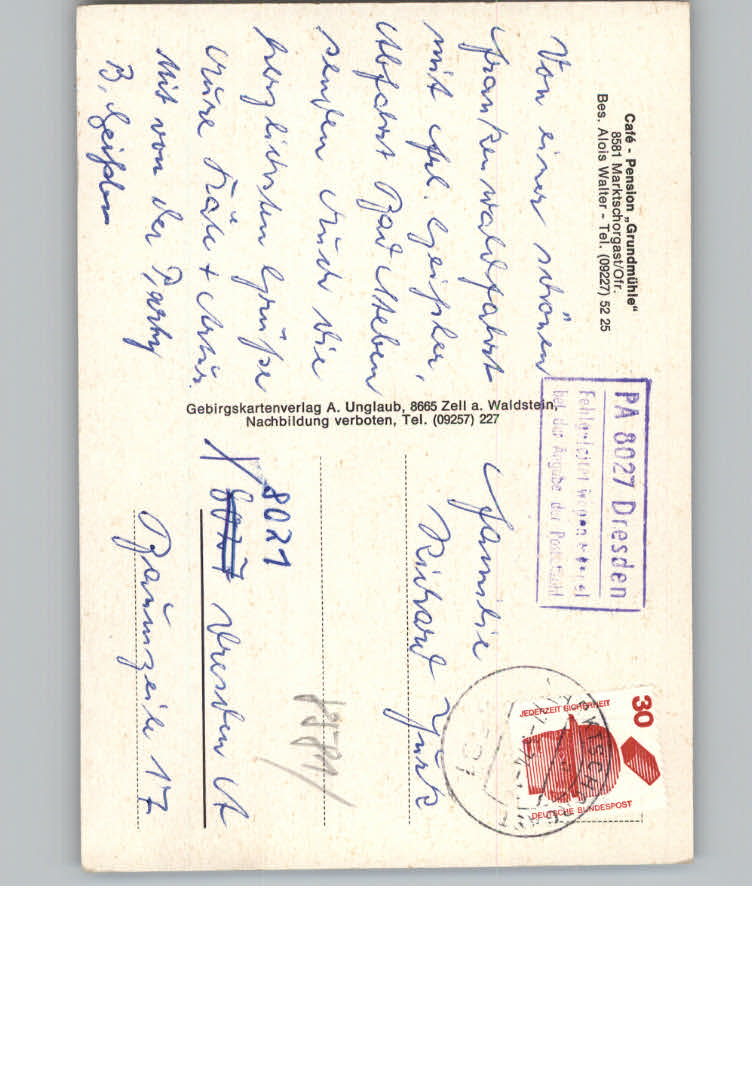 Café - Pension „Grundmühle"
8581 Marktschorgast/Ofr.
Bes. Alois Walter - Tel. (09227) 52 25
Von einer schönen
Frankenwaldfahrt
mit Frl. Geipler,
Abfahrt Bad Steben
senden Euch die
herzlichsten Grüße
Eure Käte + Artur.
Mit von der Party
B. Geipler
Gebirgskartenverlag A. Unglaub, 8665 Zell a. Waldstein,
Nachbildung verboten, Tel. (09257) 227
PA 8027 Dresden
Fehlgeleitet wegen Mängel
bei der Angabe der Postleitzahl
30
JEDERZEIT SICHERHEIT
DEUTSCHE BUNDESPOST
Familie
Richard Jürk
8021
8027 Dresden A
Baumzeile 17